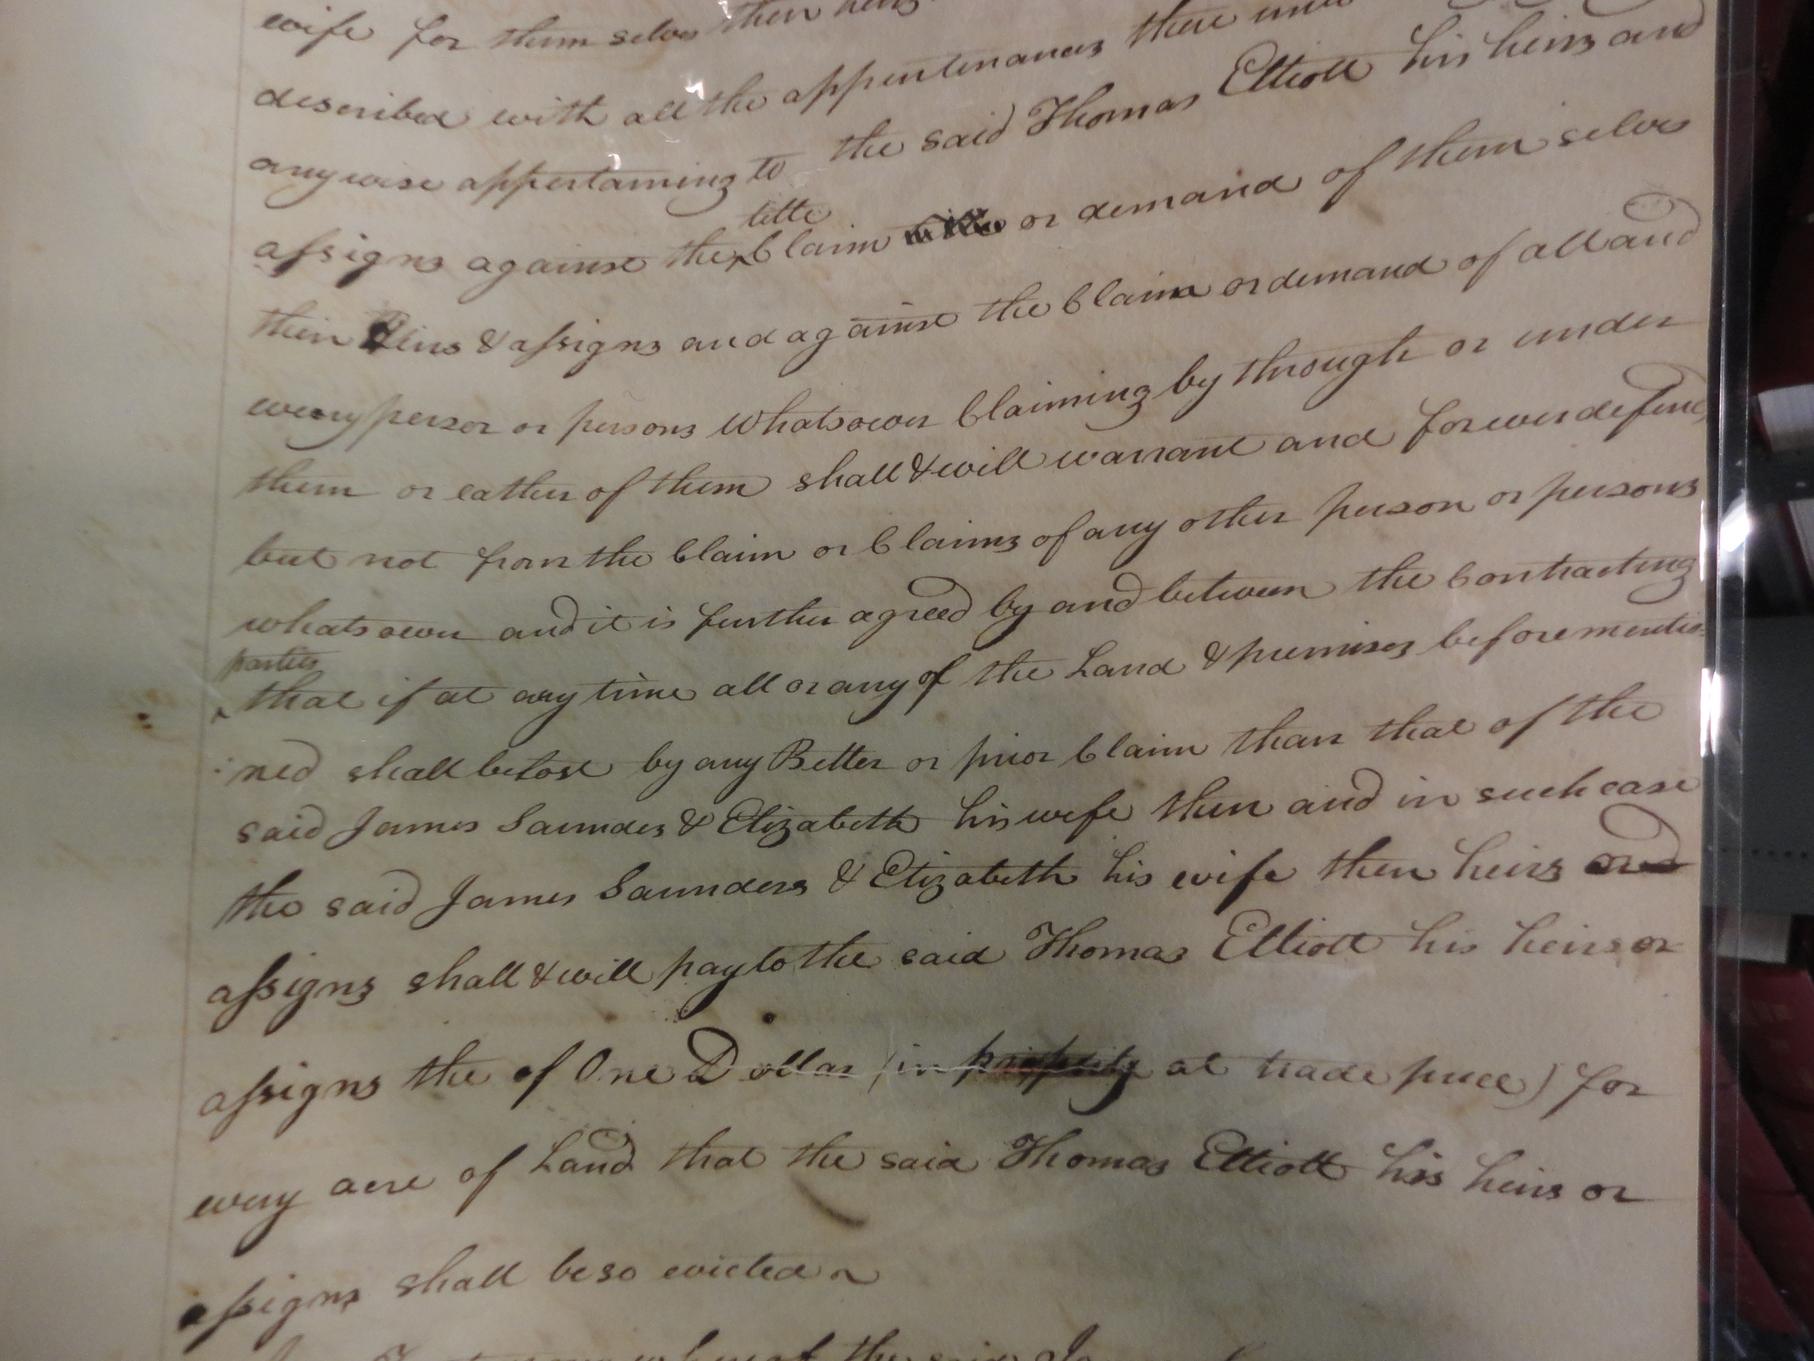 wife for them selves their heirs
described with all the appurtenances there unto
anywise appertaining to the said Thomas Elliott his heirs and
title
assigns against the ^ Claim or demand of them selves
their Heirs & assigns and against the Claim or demand of all and
every person or persons Whatsoever Claiming by through or under
them or eather of them shall & will warrant and forever defend,
but not from the Claim or Claims of any other person or persons
whatsoever and it is further agreed by and between the Contracting
parties
^ that if at any time all or any of the Land & premises beforementio-
:ned shall be lost by any Better or prior Claim than that of the
said James Saunders & Elizabeth his wife then and in such case
the said James Saunders & Elizabeth his wife their heirs and
assigns shall & will pay to the said Thomas Elliott his heirs or
assigns the of One Dollar (in property at trade price) for
every acre of Land that the said Thomas Elliott his heirs or
assigns shall be so evicted or
the said